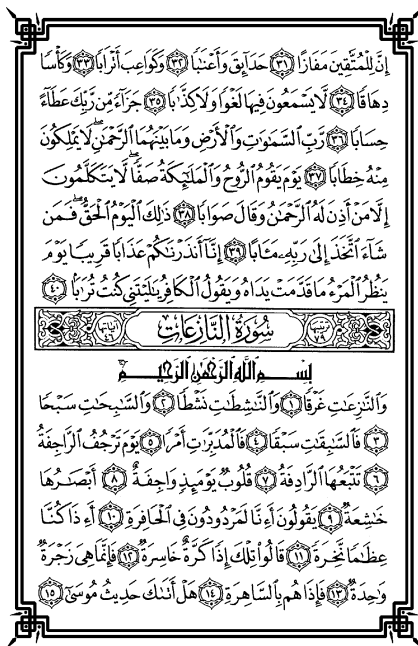 إِنَّ لِلْمُتَّقِينَ مَفَازًا ٣١ حَدَآئِقَ وَأَعْنَٰبًا ٣٢ وَكَوَاعِبَ أَتْرَابًا ٣٣ وَكَأْسًا
دِهَاقًا ٣٤ لَّا يَسْمَعُونَ فِيهَا لَغْوًا وَلَا كِذَّٰبًا ٣٥ جَزَآءً مِّن رَّبِّكَ عَطَآءً
حِسَابًا ٣٦ رَّبِّ ٱلسَّمَٰوَٰتِ وَٱلْأَرْضِ وَمَا بَيْنَهُمَا ٱلرَّحْمَٰنِ ۖ لَا يَمْلِكُونَ
مِنْهُ خِطَابًا ٣٧ يَوْمَ يَقُومُ ٱلرُّوحُ وَٱلْمَلَٰٓئِكَةُ صَفًّا ۖ لَّا يَتَكَلَّمُونَ
إِلَّا مَنْ أَذِنَ لَهُ ٱلرَّحْمَٰنُ وَقَالَ صَوَابًا ٣٨ ذَٰلِكَ ٱلْيَوْمُ ٱلْحَقُّ ۖ فَمَن
شَآءَ ٱتَّخَذَ إِلَىٰ رَبِّهِۦ مَـَٔابًا ٣٩ إِنَّآ أَنذَرْنَٰكُمْ عَذَابًا قَرِيبًا يَوْمَ
يَنظُرُ ٱلْمَرْءُ مَا قَدَّمَتْ يَدَاهُ وَيَقُولُ ٱلْكَافِرُ يَٰلَيْتَنِى كُنتُ تُرَٰبًۢا ٤٠
ترتيبها ٧٩ سُورَةُ النَّازِعَاتِ آياتها ٤٦
بِسْمِ ٱللَّهِ ٱلرَّحْمَٰنِ ٱلرَّحِيمِ
وَٱلنَّٰزِعَٰتِ غَرْقًا ١ وَٱلنَّٰشِطَٰتِ نَشْطًا ٢ وَٱلسَّٰبِحَٰتِ سَبْحًا
٣ فَٱلسَّٰبِقَٰتِ سَبْقًا ٤ فَٱلْمُدَبِّرَٰتِ أَمْرًا ٥ يَوْمَ تَرْجُفُ ٱلرَّاجِفَةُ
٦ تَتْبَعُهَا ٱلرَّادِفَةُ ٧ قُلُوبٌ يَوْمَئِذٍ وَاجِفَةٌ ٨ أَبْصَٰرُهَا
خَٰشِعَةٌ ٩ يَقُولُونَ أَءِنَّا لَمَرْدُودُونَ فِى ٱلْحَافِرَةِ ١٠ أَءِذَا كُنَّا
عِظَٰمًا نَّخِرَةً ١١ قَالُوا۟ تِلْكَ إِذًا كَرَّةٌ خَاسِرَةٌ ١٢ فَإِنَّمَا هِىَ زَجْرَةٌ
وَٰحِدَةٌ ١٣ فَإِذَا هُم بِٱلسَّاهِرَةِ ١٤ هَلْ أَتَىٰكَ حَدِيثُ مُوسَىٰٓ ١٥